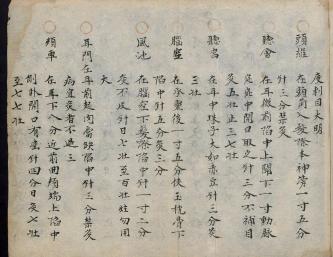 戾刺目大明
頭維
在額角入髮際本神旁一寸五分
針三分禁灸
聽會
在耳微前陷中上關下一寸動脉
宛宛中開口取之針三分不補日
灸五壯止三七壯
聽宮
在耳中珠子大如赤豆針三分灸
三壯
腦空
在承靈後一寸五分俠玉枕骨下
陷中針五分灸三分
風池
在腦空下髮際陷中針一寸二分
灸不及針日七壯至百壯炷勿用
大
耳門在耳前起肉當缺陷中針三分禁灸
病宜灸者不過三
頰車
在耳下八分近前曲頰端上陷中
側卧開口有空針四分日灸七壯
至七七壯